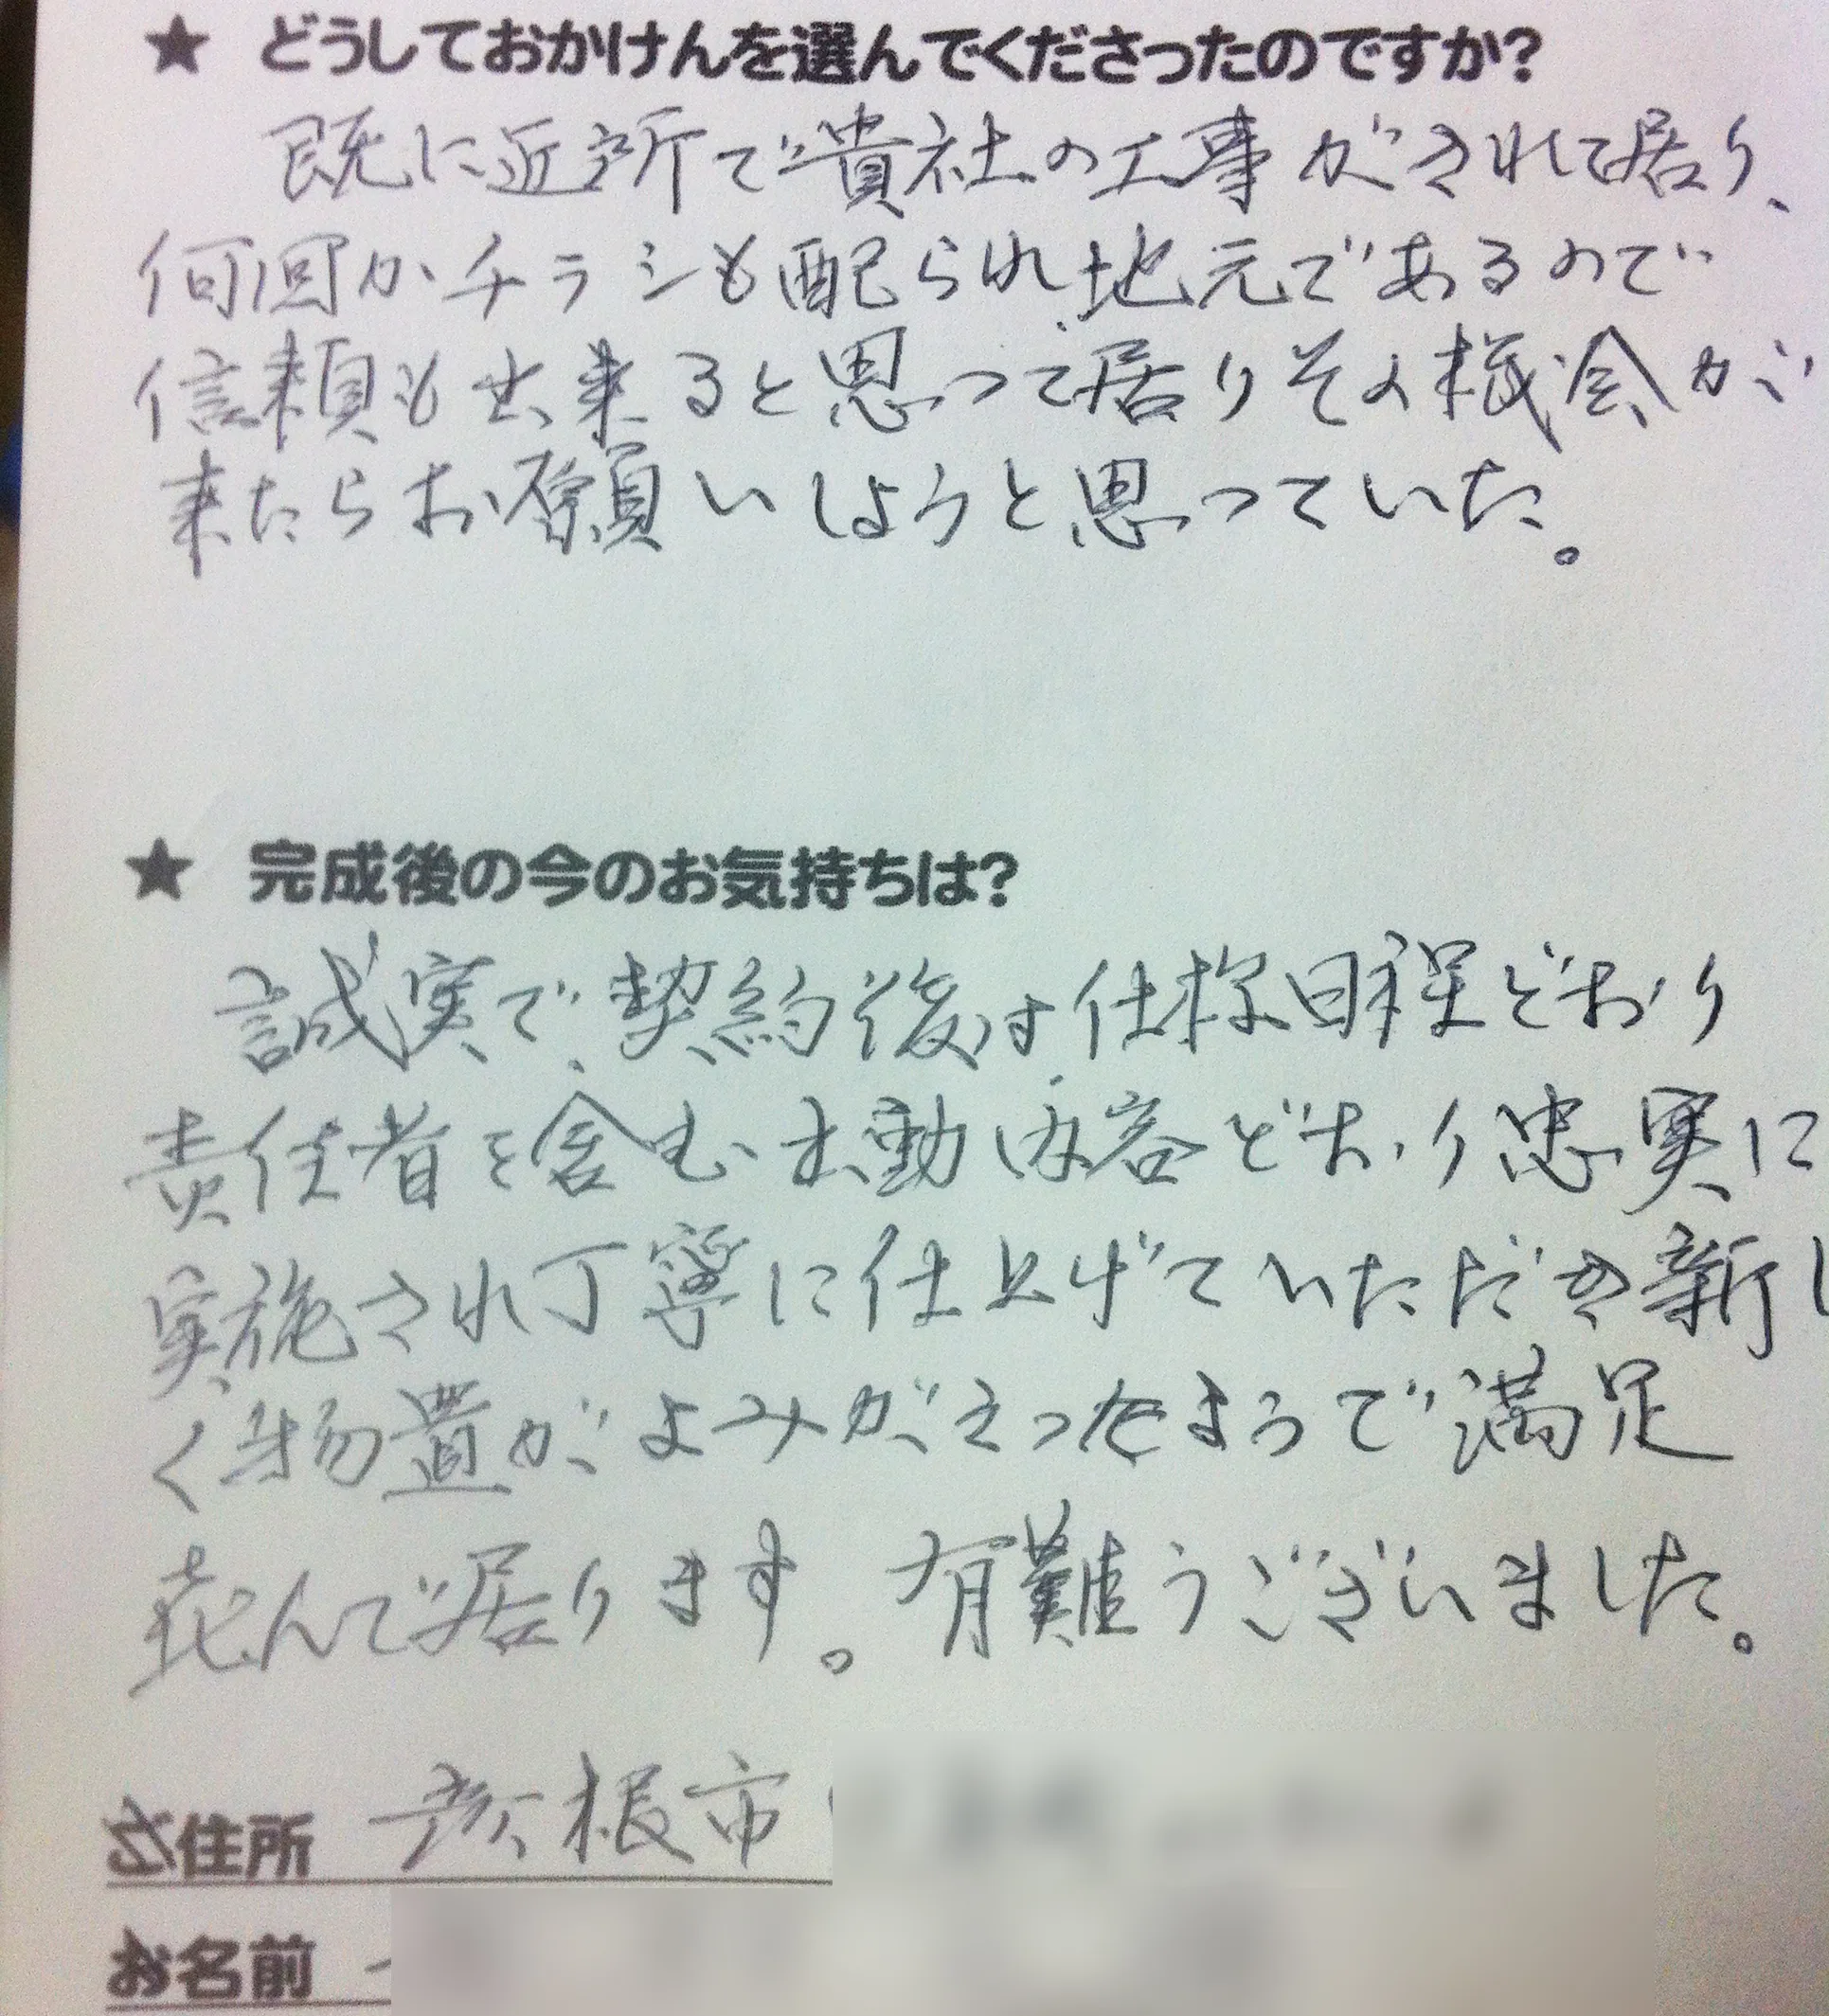 ★ どうしておかけんを選んでくださったのですか?
既に近所で貴社の工事がされて居り、
何回かチラシも配られ地元であるので
信頼も出来ると思って居りその機会が
来たらお願いしようと思っていた。
★ 完成後の今のお気持ちは?
誠実で、契約後は仕様日程どおり
責任者を含む出動内容どおり忠実に
実施され丁寧に仕上げていただき新し
く物置がよみがえったようで満足
喜んで居ります。有難うございました。
ご住所 彦根市
お名前